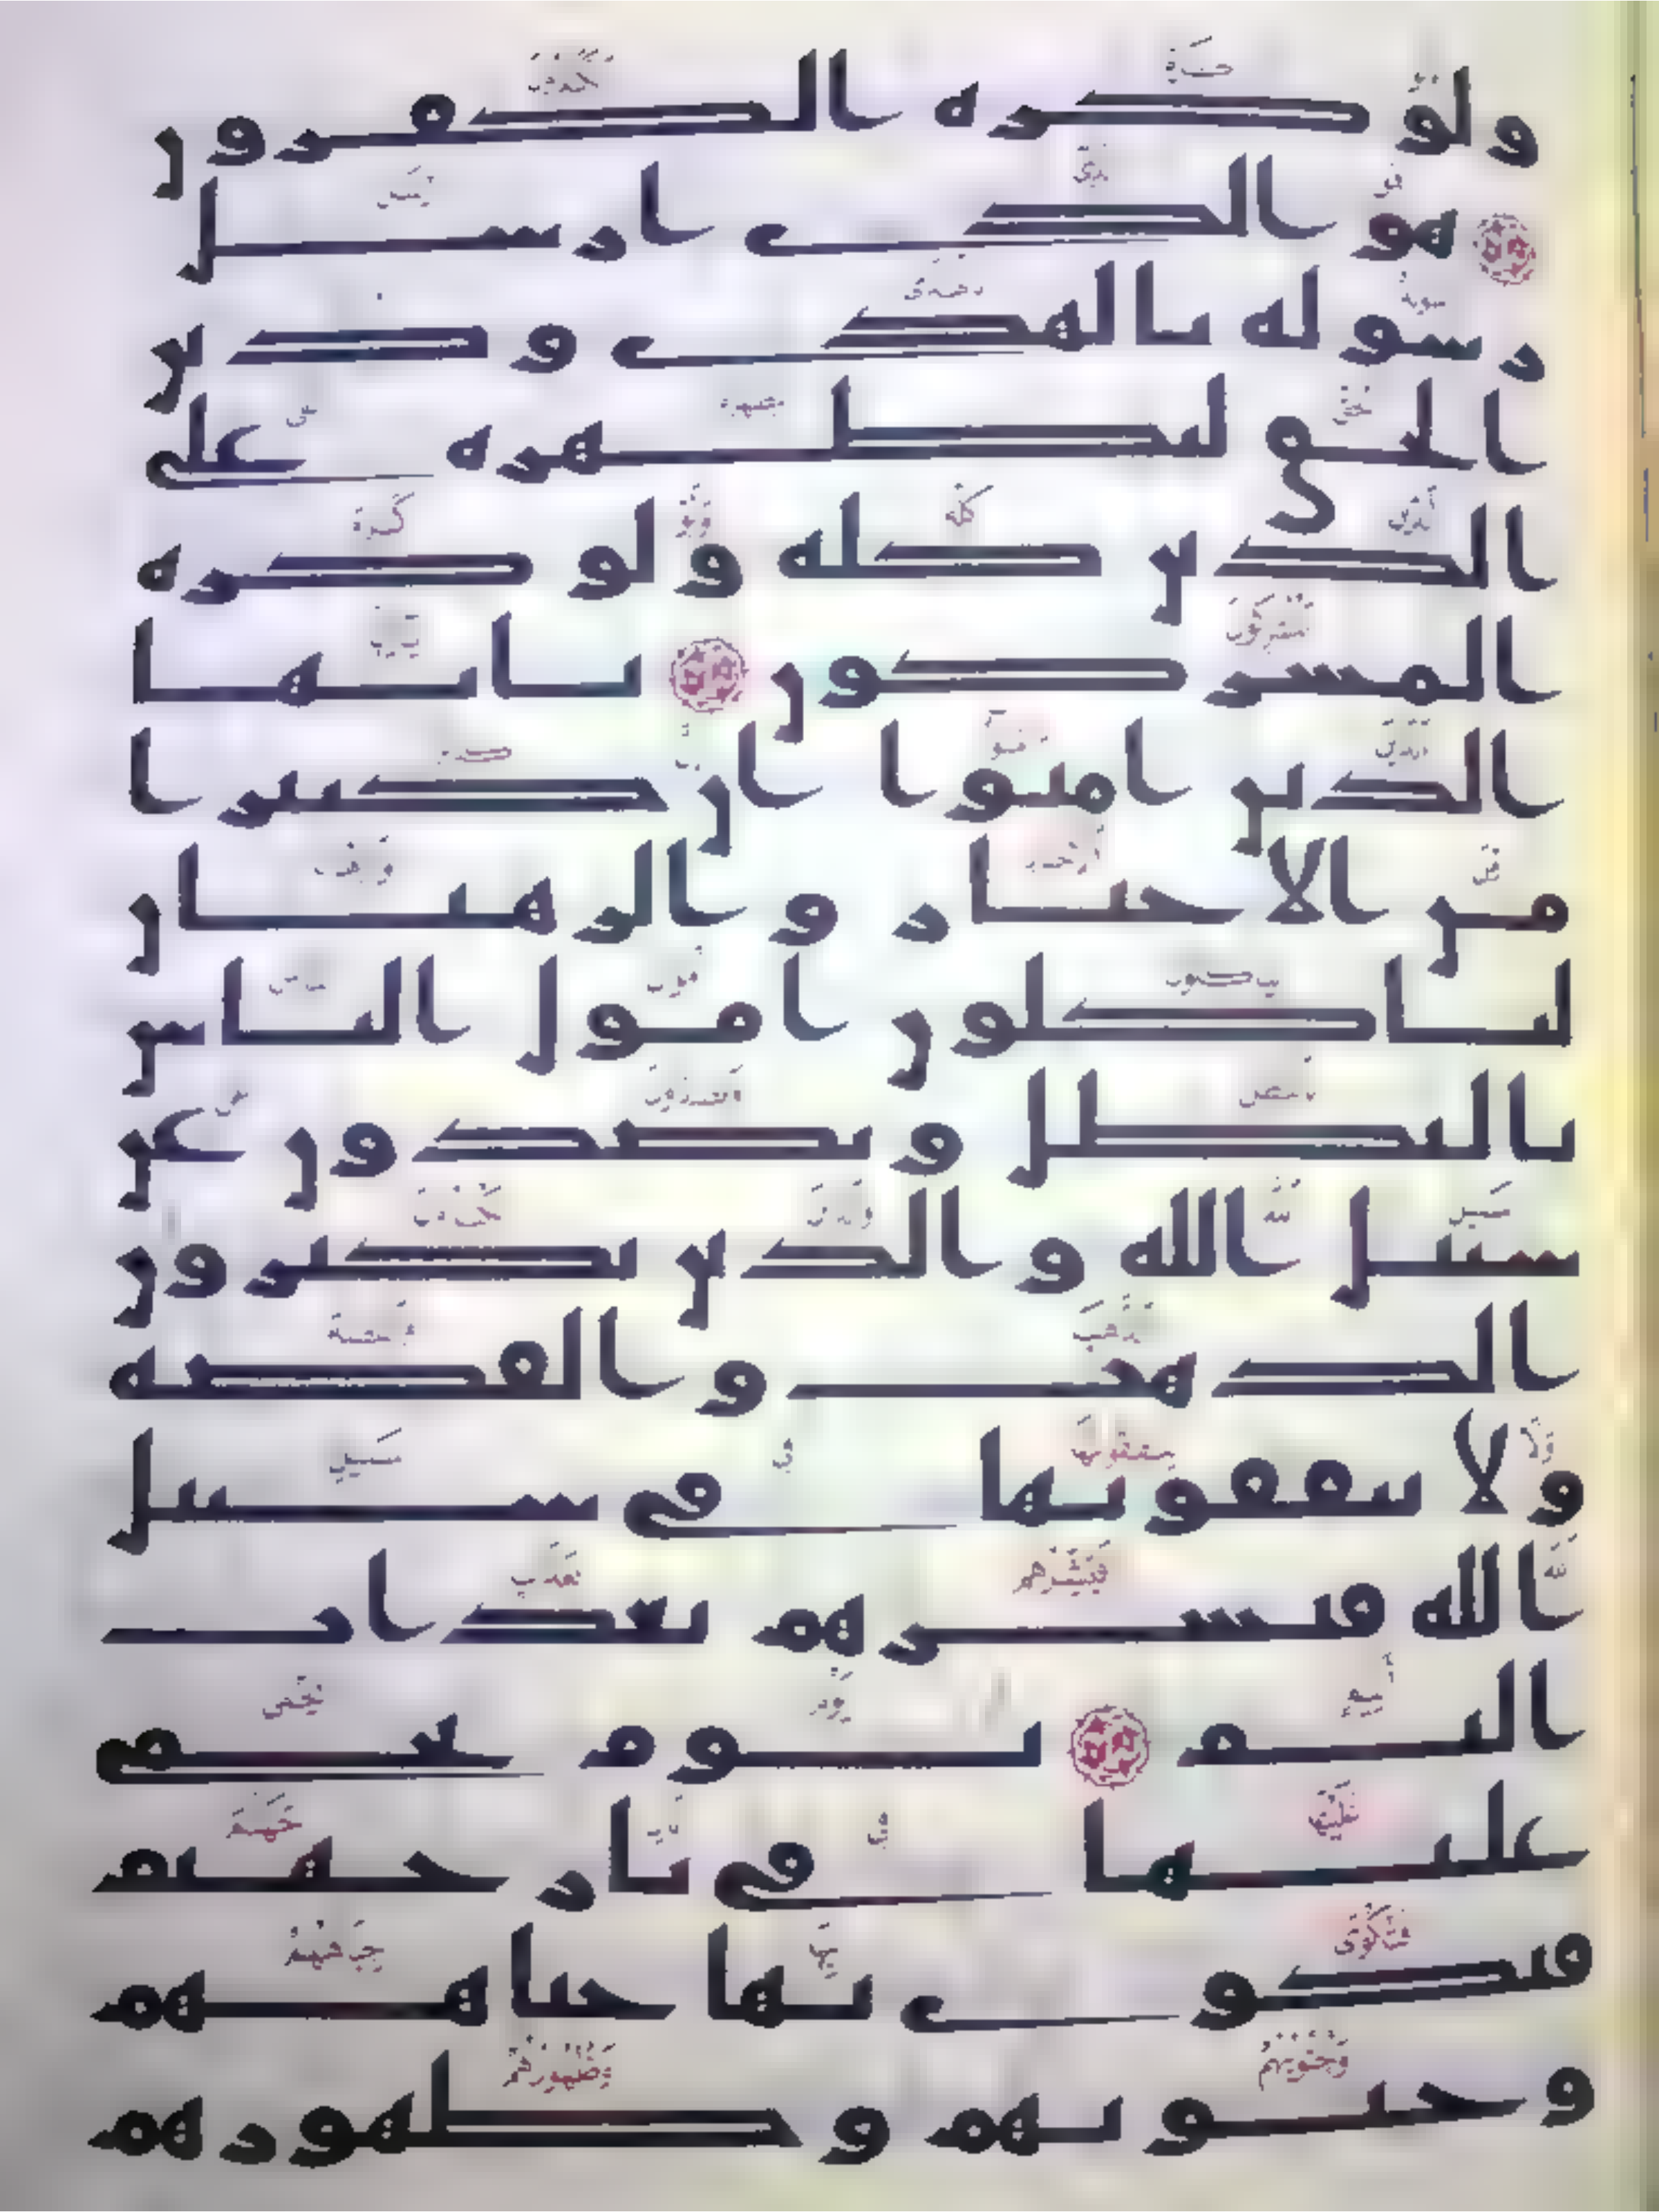 ولو كره الكفرون
هو الذي ارسل
رسوله بالهدى ودين
الحق ليظهره على
الدين كله ولو كره
المشركون يايها
الذين امنوا ان كثيرا
من الاحبار والرهبان
لياكلون امول الناس
بالبطل ويصدون عن
سبيل الله والذين يكنزون
الذهب والفضة
ولا ينفقونها في سبيل
الله فبشرهم بعذاب
اليم يوم يحمى
عليها في نار جهنم
فتكوى بها جباههم
وجنوبهم وظهورهم